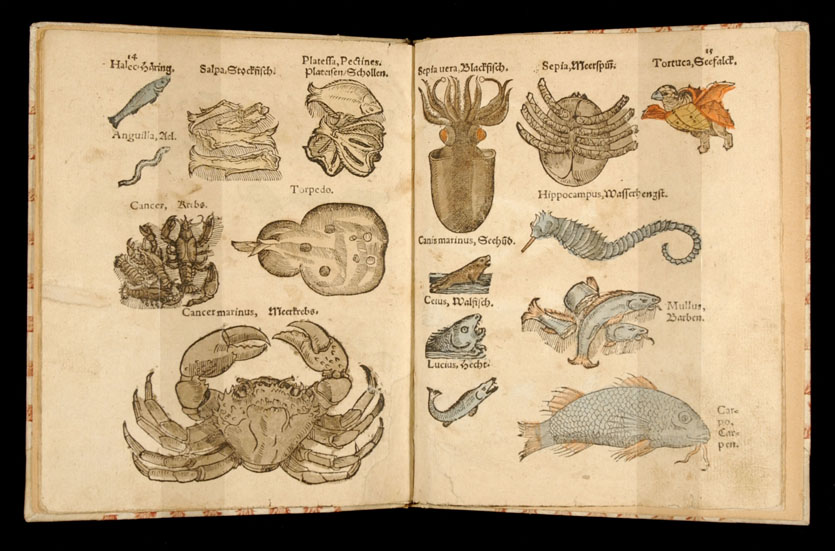 14
Halec, Häring.
Salpa, Stockfisch.
Platessa, Pectines.
Plateisen/Schollen.
Anguilla, Aal.
Cancer, Krebs.
Torpedo.
Cancer marinus, Meerkrebs.
15
Sepia uera, Blackfisch.
Sepia, Meerspin.
Tortuca, Seefalck.
Hippocampus, Wasserhengst.
Canis marinus, Seehūd.
Cetus, Walfisch.
Mullus,
Barben.
Lucius, Hecht.
Car-
po,
Car-
pen.